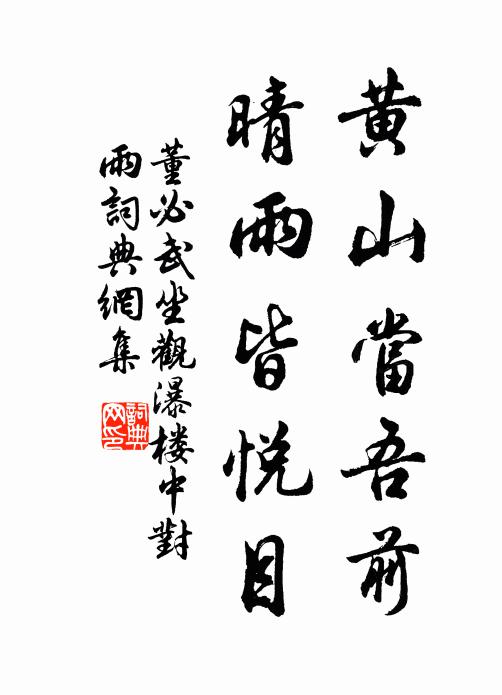 黄山當吾前
晴雨皆悦目
董必武坐觀瀑楼中對
雨詞典網集
詞典
网印